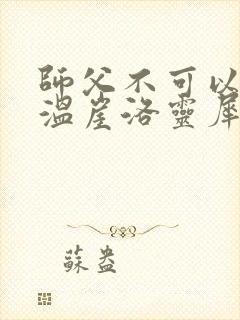 師父不可以
溫崖洛靈犀
蘇盎